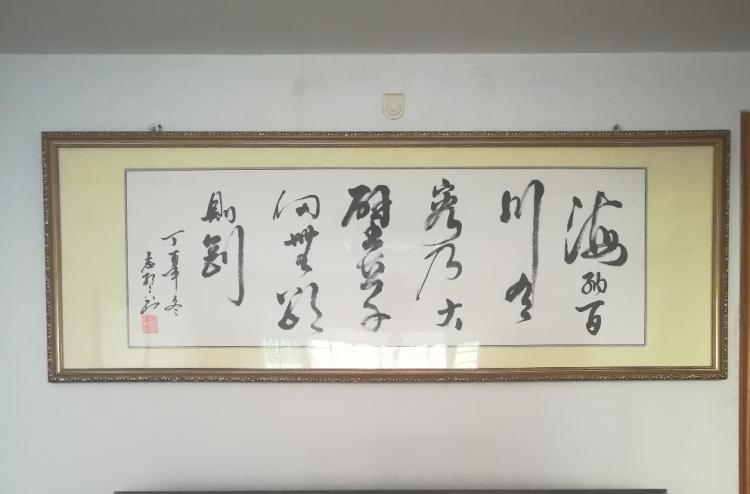 海納百
川有
容乃大
壁立千
仞無欲
則剛
丁酉年冬